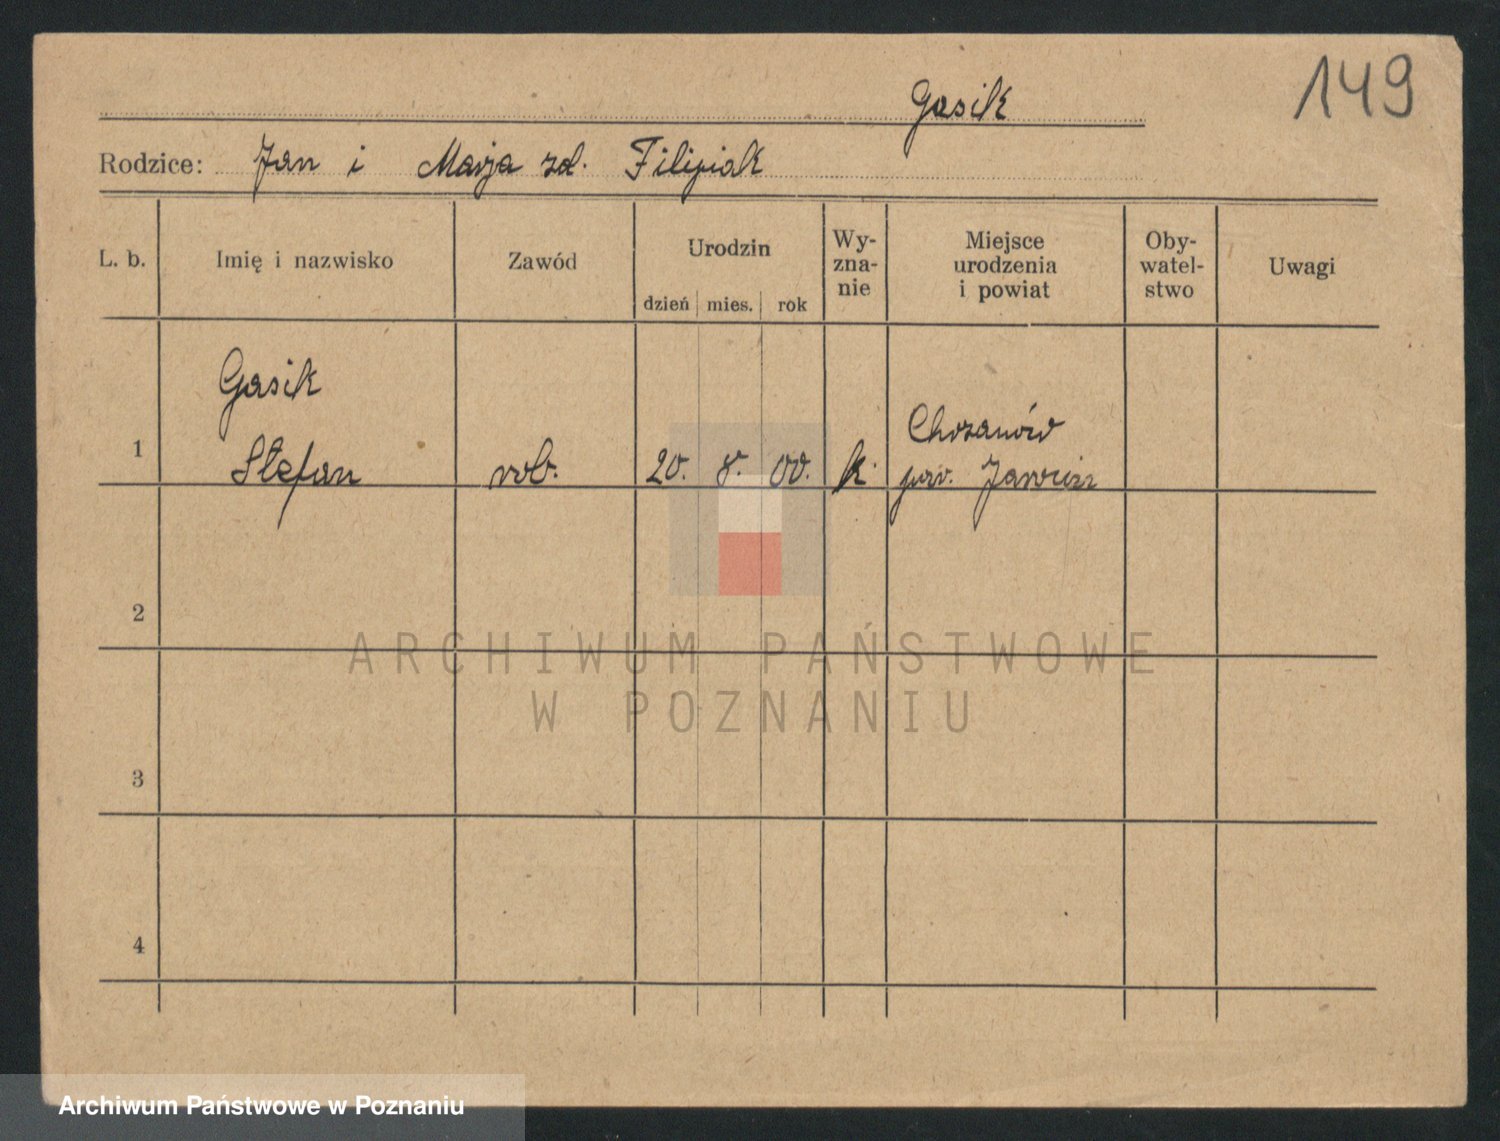 149
Gasik
Rodzice: Jan i Marja zd. Filipiak
L. b. Imię i nazwisko Zawód Urodzin dzień mies. rok Wy-zna-nie Miejsce urodzenia i powiat Oby-watel-stwo Uwagi
Gasik
1 Stefan rob. 20. 8. 00. k. Chrzanów
pow. Jarocin
2
3
4
ARCHIWUM PAŃSTWOWE
W POZNANIU
Archiwum Państwowe w Poznaniu